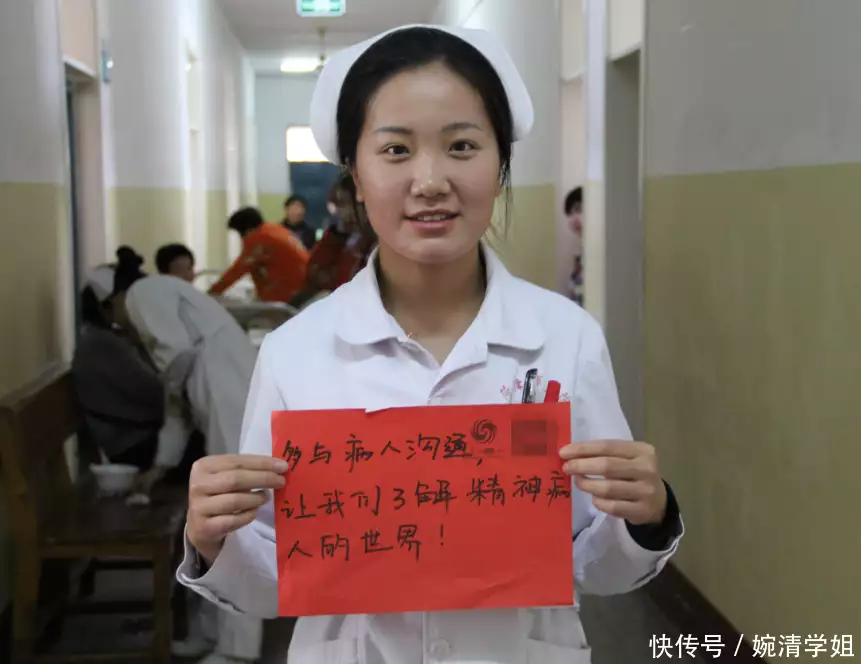 多与病人沟通,
让我们了解精神病
人的世界!
快传号 / 婉清学姐